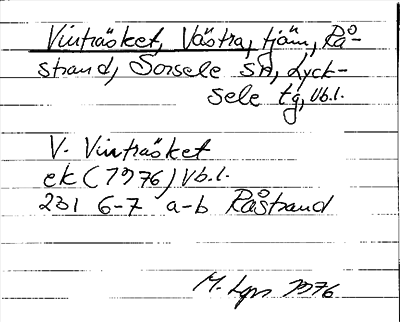 Vinträsket, Västra, tjärn, Rå-
strand, Sorsele sn, Lyck-
sele tg, Vb.l.
V. Vinträsket
ek (1976) Vb.l.
231 6-7 a-b Råstrand
M. 1976